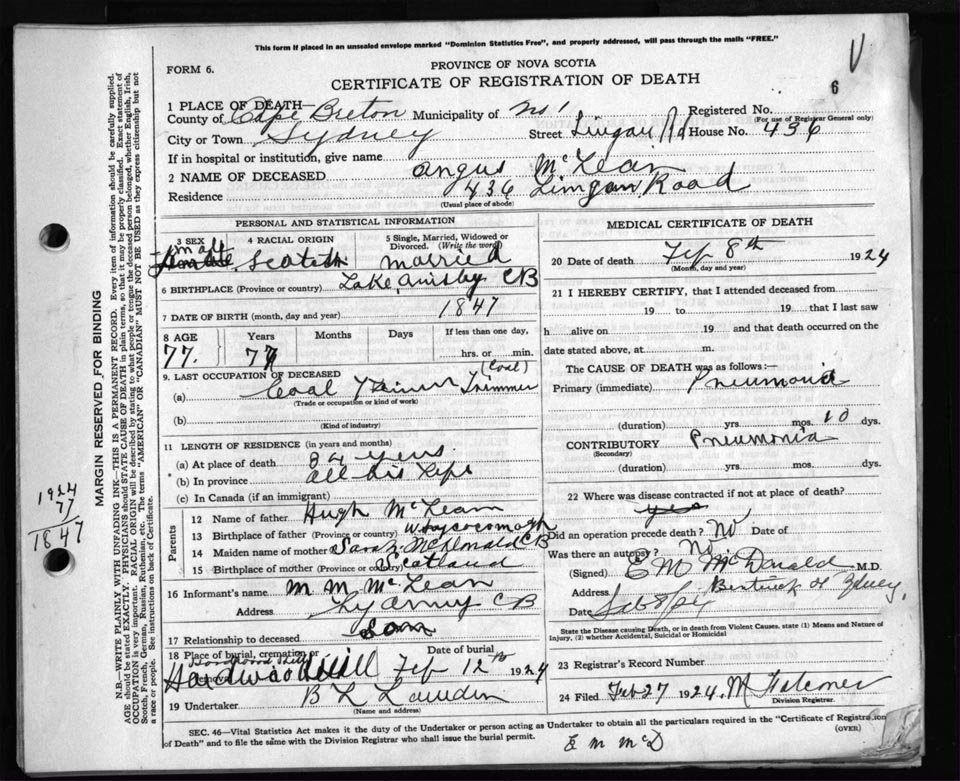 This form if placed in an unsealed envelope marked "Dominion Statistics Free", and properly addressed, will pass through the mails "FREE."
FORM 6.
PROVINCE OF NOVA SCOTIA
CERTIFICATE OF REGISTRATION OF DEATH
6
1 PLACE OF DEATH—
County of Cape Breton Municipality of Registered No.
(For use of Registrar General only)
City or Town Sydney Street Lingan Rd House No. 436
If in hospital or institution, give name
2 NAME OF DECEASED Angus McLean
Residence 436 Lingan Road
(Usual place of abode)
PERSONAL AND STATISTICAL INFORMATION
3 SEX male
4 RACIAL ORIGIN Scotch
5 Single, Married, Widowed or Divorced. (Write the word) married
6 BIRTHPLACE (Province or country) Lake Ainsby CB
7 DATE OF BIRTH (month, day and year) 1847
8 AGE Years Months Days If less than one day,
77. 77 hrs. or min.
9. LAST OCCUPATION OF DECEASED (Coal)
(a) Coal Trimmer
(Trade or occupation or kind of work)
(b)
(Kind of industry)
11 LENGTH OF RESIDENCE (in years and months)
(a) At place of death 24 years
(b) In province all his life
(c) In Canada (if an immigrant)
Parents
12 Name of father Hugh McLean
13 Birthplace of father (Province or country) Whycocomagh CB
14 Maiden name of mother Sarah McDonald
15 Birthplace of mother (Province or country) Scotland
16 Informant's name M M McLean
Address CB
17 Relationship to deceased Son
18 Place of burial, cremation or removal Date of burial
Hardwood Hill Feb 12th 1924
19 Undertaker B L
(Name and address)
MEDICAL CERTIFICATE OF DEATH
20 Date of death Feb 8th 1924
(Month, day and year)
21 I HEREBY CERTIFY, that I attended deceased from
19 to 19 that I last saw
h alive on 19 and that death occurred on the
date stated above, at m.
The CAUSE OF DEATH was as follows:—
Primary (immediate) Pneumonia
(duration) yrs. mos. 10 dys.
CONTRIBUTORY Pneumonia
(Secondary)
(duration) yrs. mos. dys.
22 Where was disease contracted if not at place of death?
yes
Did an operation precede death? No Date of
Was there an autopsy? No
(Signed) E M McDonald M.D.
Address
Date
State the Disease causing Death, or in death from Violent Causes, state (1) Means and Nature of Injury, (2) whether Accidental, Suicidal or Homicidal
23 Registrar's Record Number
24 Filed Feb 27 1924. M Falconer
Division Registrar.
SEC. 46—Vital Statistics Act makes it the duty of the Undertaker or person acting as Undertaker to obtain all the particulars required in the "Certificate of Registration
of Death" and to file the same with the Division Registrar who shall issue the burial permit.
(OVER)
E M McD
MARGIN RESERVED FOR BINDING
N.B.—WRITE PLAINLY WITH UNFADING INK—THIS IS A PERMANENT RECORD. Every item of information should be carefully supplied.
AGE should be stated EXACTLY. PHYSICIANS should STATE CAUSE OF DEATH in plain terms, so that it may be properly classified. Exact statement of
OCCUPATION is very important. RACIAL ORIGIN will be described by stating to what people or tongue the deceased person belonged, whether English, Irish,
Scotch, French, German, Russian, Ruthenian, etc. The terms "AMERICAN" or "CANADIAN" MUST NOT BE USED as they express citizenship but not
a race or people. See instructions on back of Certificate.
1924
77
1847